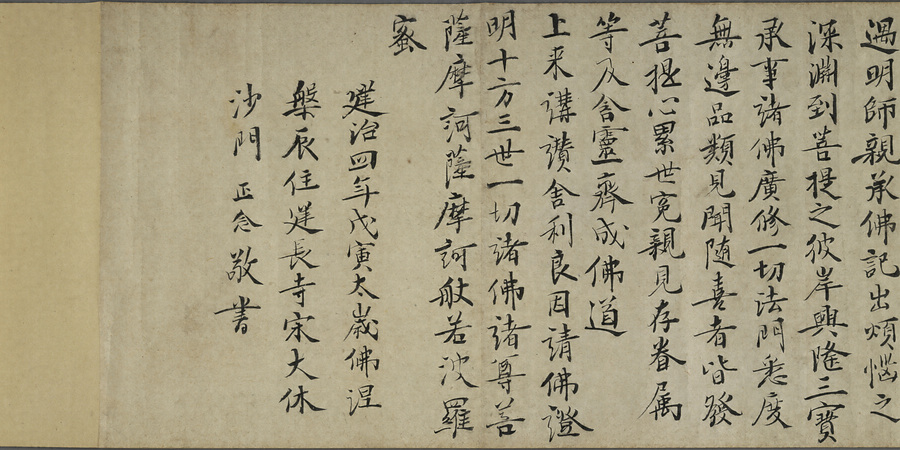 遇明師親承佛記出煩惱之
深淵到菩提之彼岸興隆三寶
承事諸佛廣修一切法門悉度
無邊品類見聞随喜者皆發
菩提心累世冤親見存眷属
等及含靈齊成佛道
上来講讃舍利良因請佛證
明十方三世一切諸佛諸尊菩
薩摩訶薩摩訶般若波羅
蜜
建治四年戊寅太歲佛涅
槃辰住建長寺宋大休
沙門正念敬書